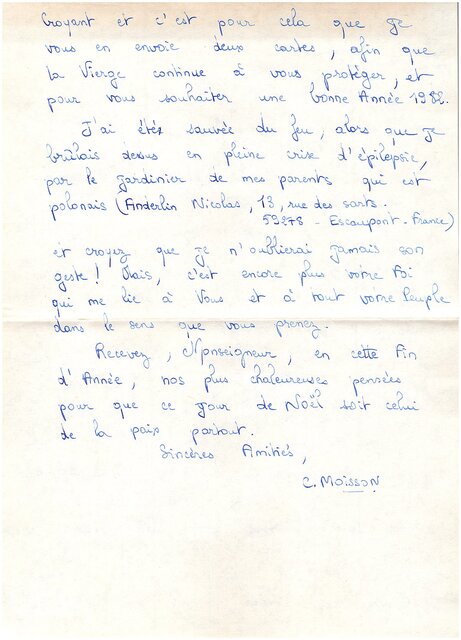 Croyant et c'est pour cela que je
vous en envoie deux cartes, afin que
la Vierge continue à vous protéger, et
pour vous souhaiter une bonne Année 1982.
J'ai étés sauvée du feu, alors que je
brûlais dessus en pleine crise d'épilepsie,
par le jardinier de mes parents qui est
polonais (Anderlin Nicolas, 13, rue des sarts.
59278 - Escaupont. France)
et croyez que je n'oublierai jamais son
geste ! Mais, c'est encore plus votre Foi
qui me lie à Vous et à tout votre Peuple
dans le sens que vous prenez.
Recevez, Monseigneur, en cette Fin
d'Année, nos plus chaleureuses pensées
pour que ce jour de Noël soit celui
de la paix partout.
Sincères Amitiés,
C. MOISSON